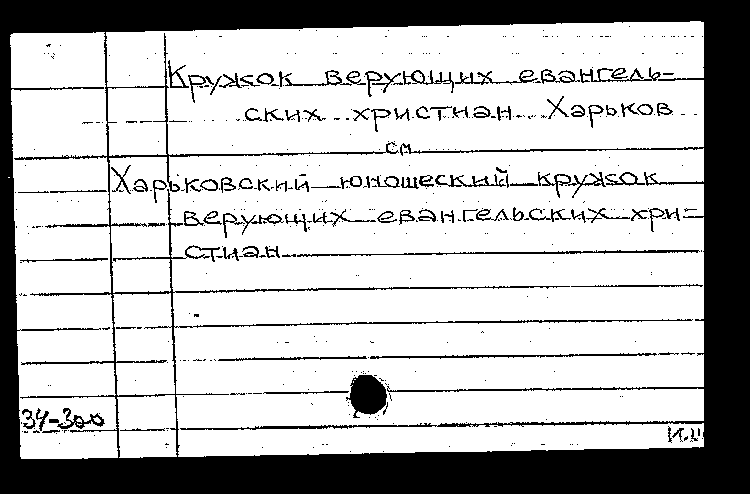 Кружок верующих евангель-
ских христиан. Харьков
см
Харьковский юношеский кружок
верующих евангельских хри-
стиан
34-300